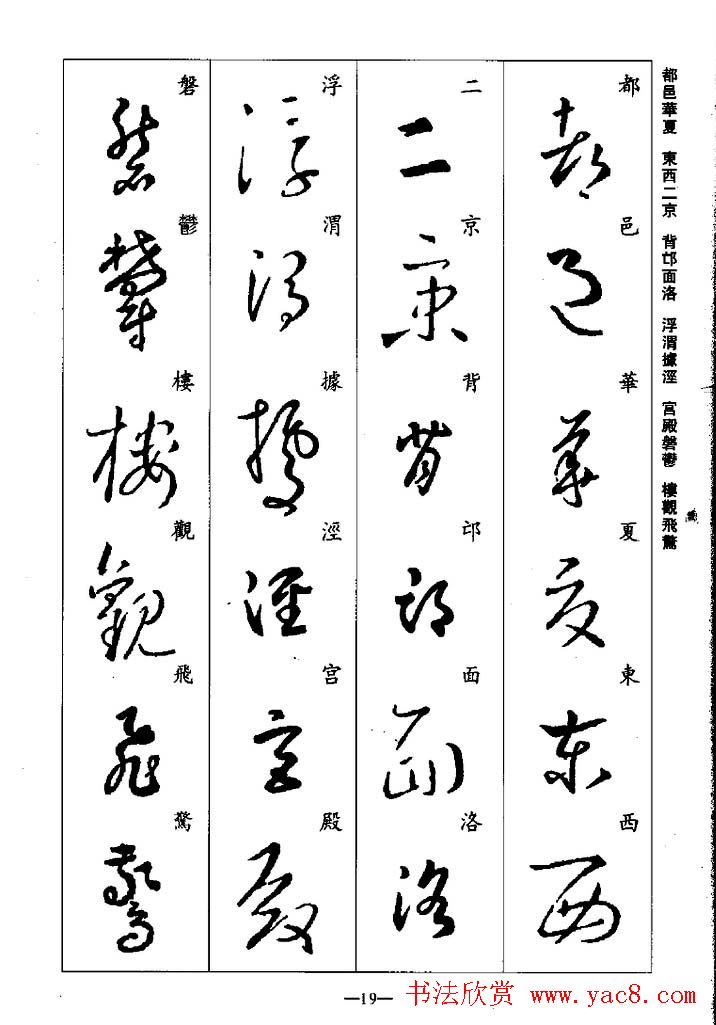 都邑華夏 東西二京 背邙面洛 浮渭據涇 宮殿磐鬱 樓觀飛驚
都邑華夏東西
二京背邙面洛
浮渭據涇宮殿
磐鬱樓觀飛驚
—19—
书法欣赏 www.yac8.com